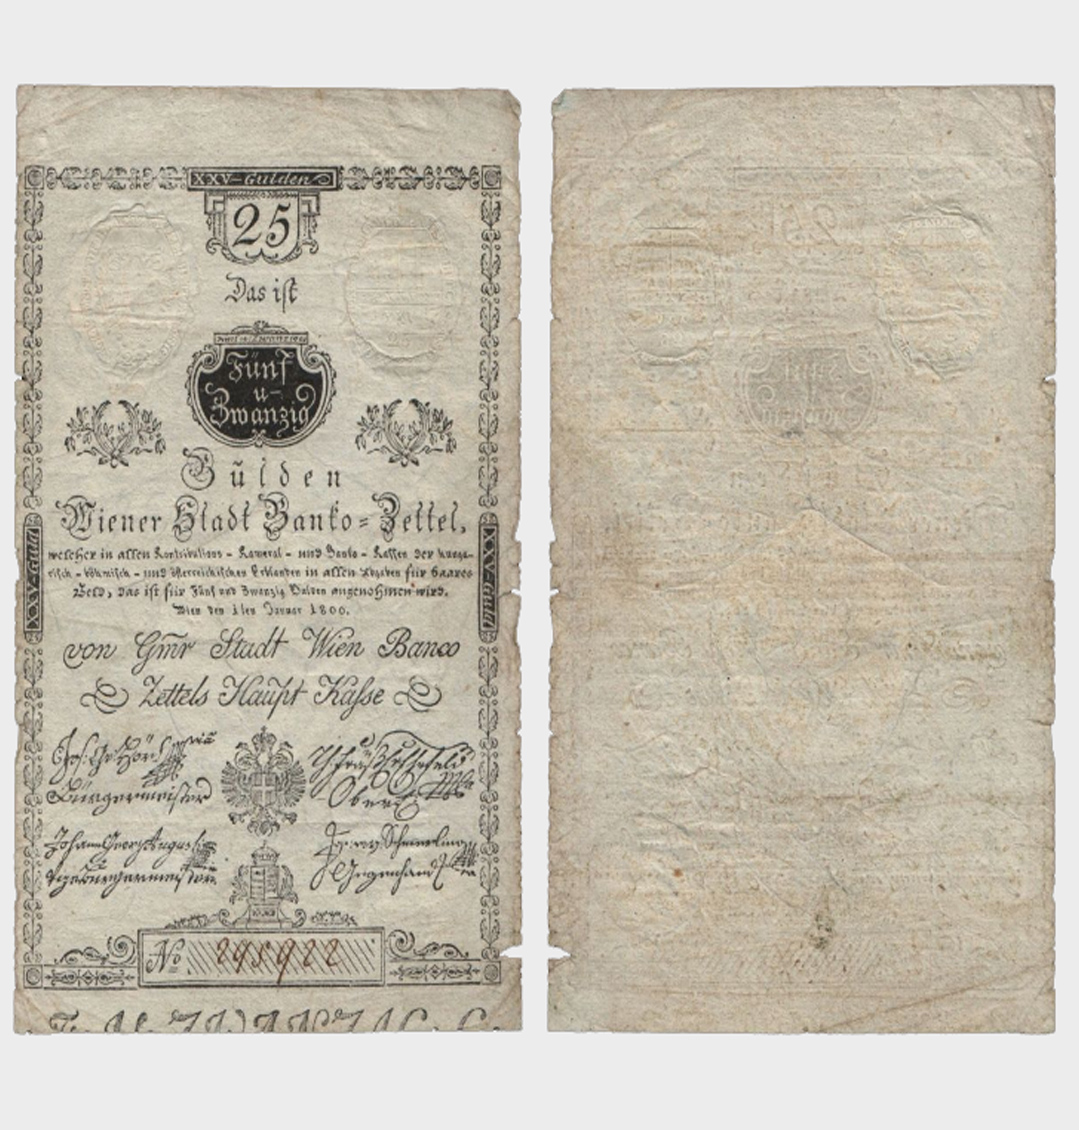 XXV-Gulden
25
Das ist
Fünf
u-
Zwanzig
Gulden
Wiener Stadt Banko=Zettel,
welcher in allen Kontributions- Kameral- und Banko-Kassen der hunga-
risch-böhmisch-und österreichischen Erblanden in allen Abgaben für baares
Geld, das ist für Fünf und Zwanzig Gulden angenohmen wird.
Wien den 1ten Januar 1800.
XXV-Guld
XXV-Guld
von Gmr Stadt Wien Banco
Zettels Haupt Kasse
Jos. Bürgermeister
Ober
Johann Georg August
Vizebürgermeister
Schmerling
Gegenhand
No 295922